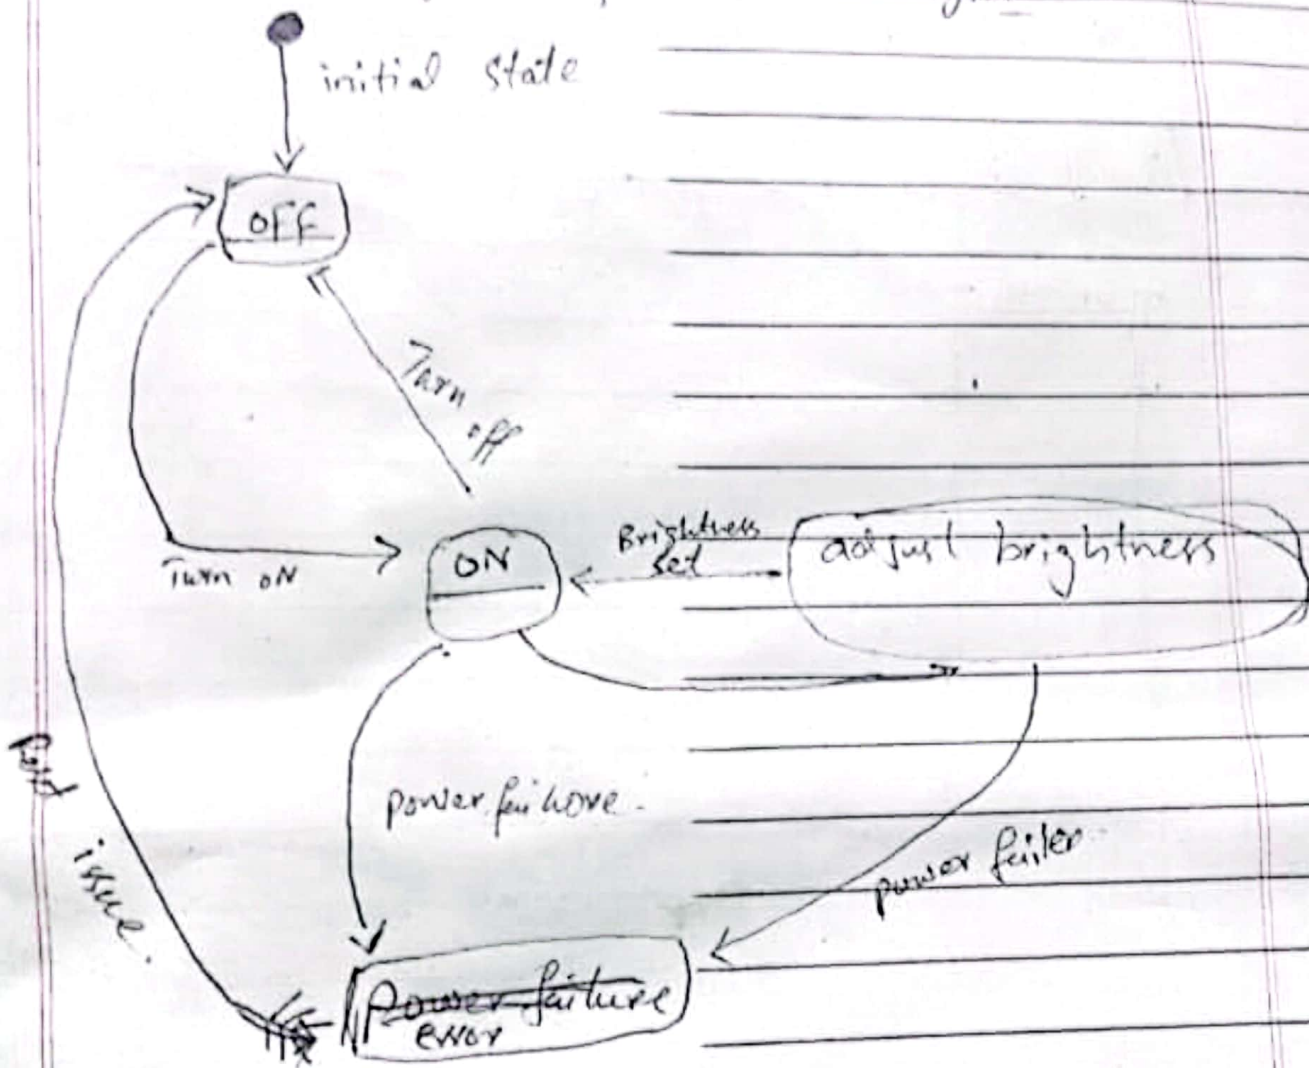 initial state
OFF
Turn off
Turn ON
ON
Brightness
set
adjust brightness
power failure
power failer
issue.
power failure
error